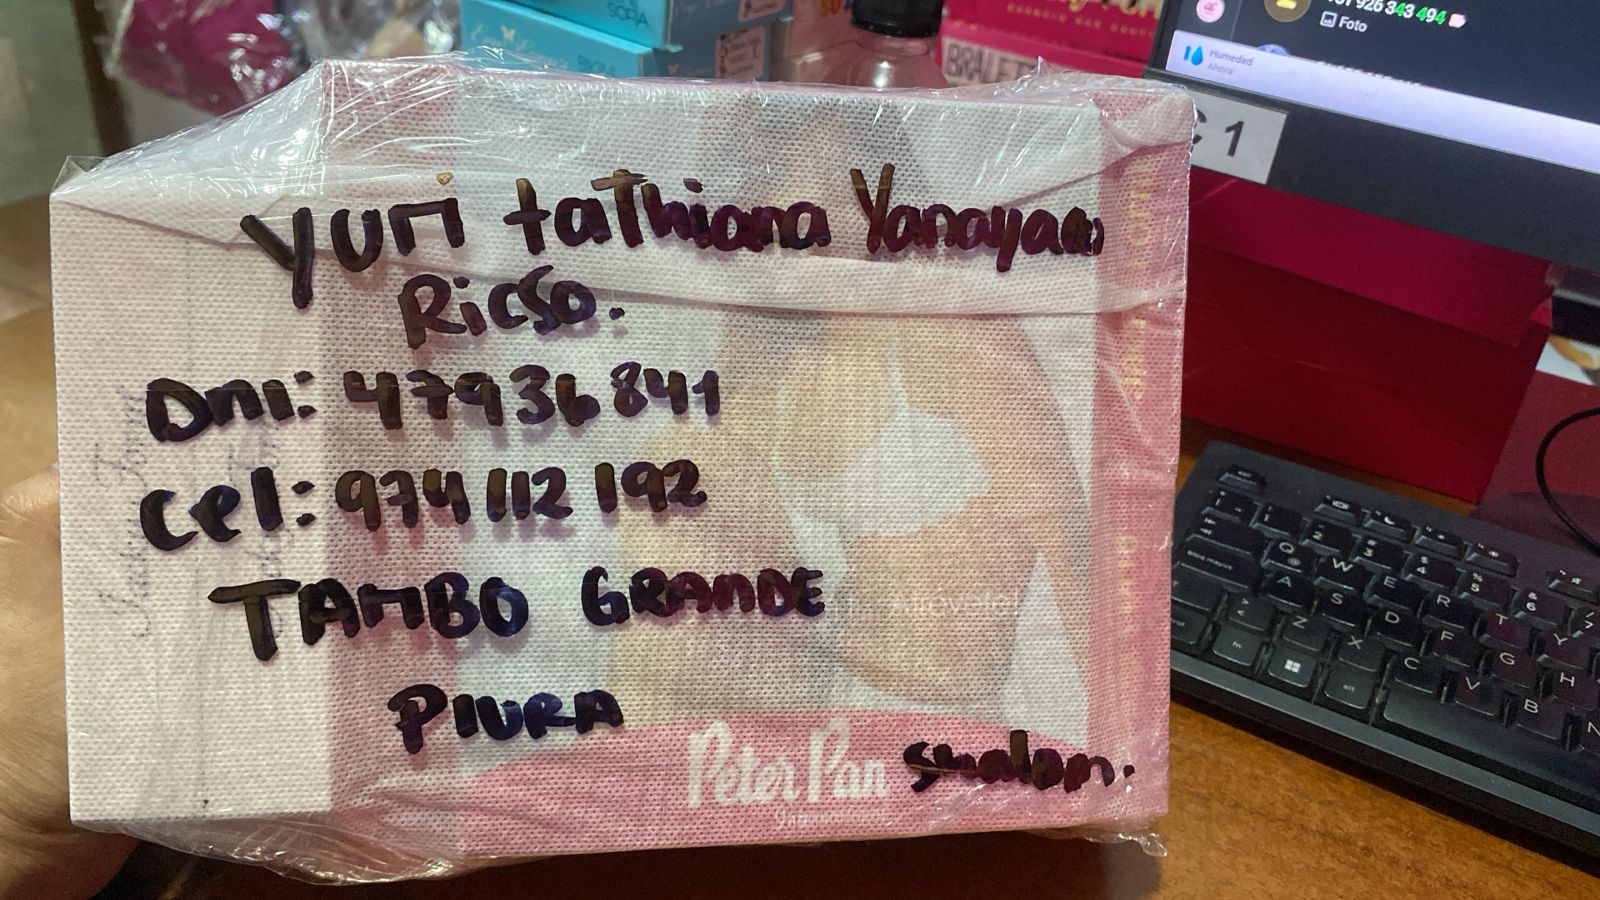 SOFIA
BIKINI
BRALET
926 343 494
Foto
Humedad
Ahora
C 1
Yuri taThiana Yanayaco
Ricso.
Dni: 47936841
Cel: 974 112 192
TAMBO GRANDE
PIURA
Shalom.
Peter Pan
Bloq mayús
fn
alt
Q W E R T Y
A S D F G H
Z X C V B N